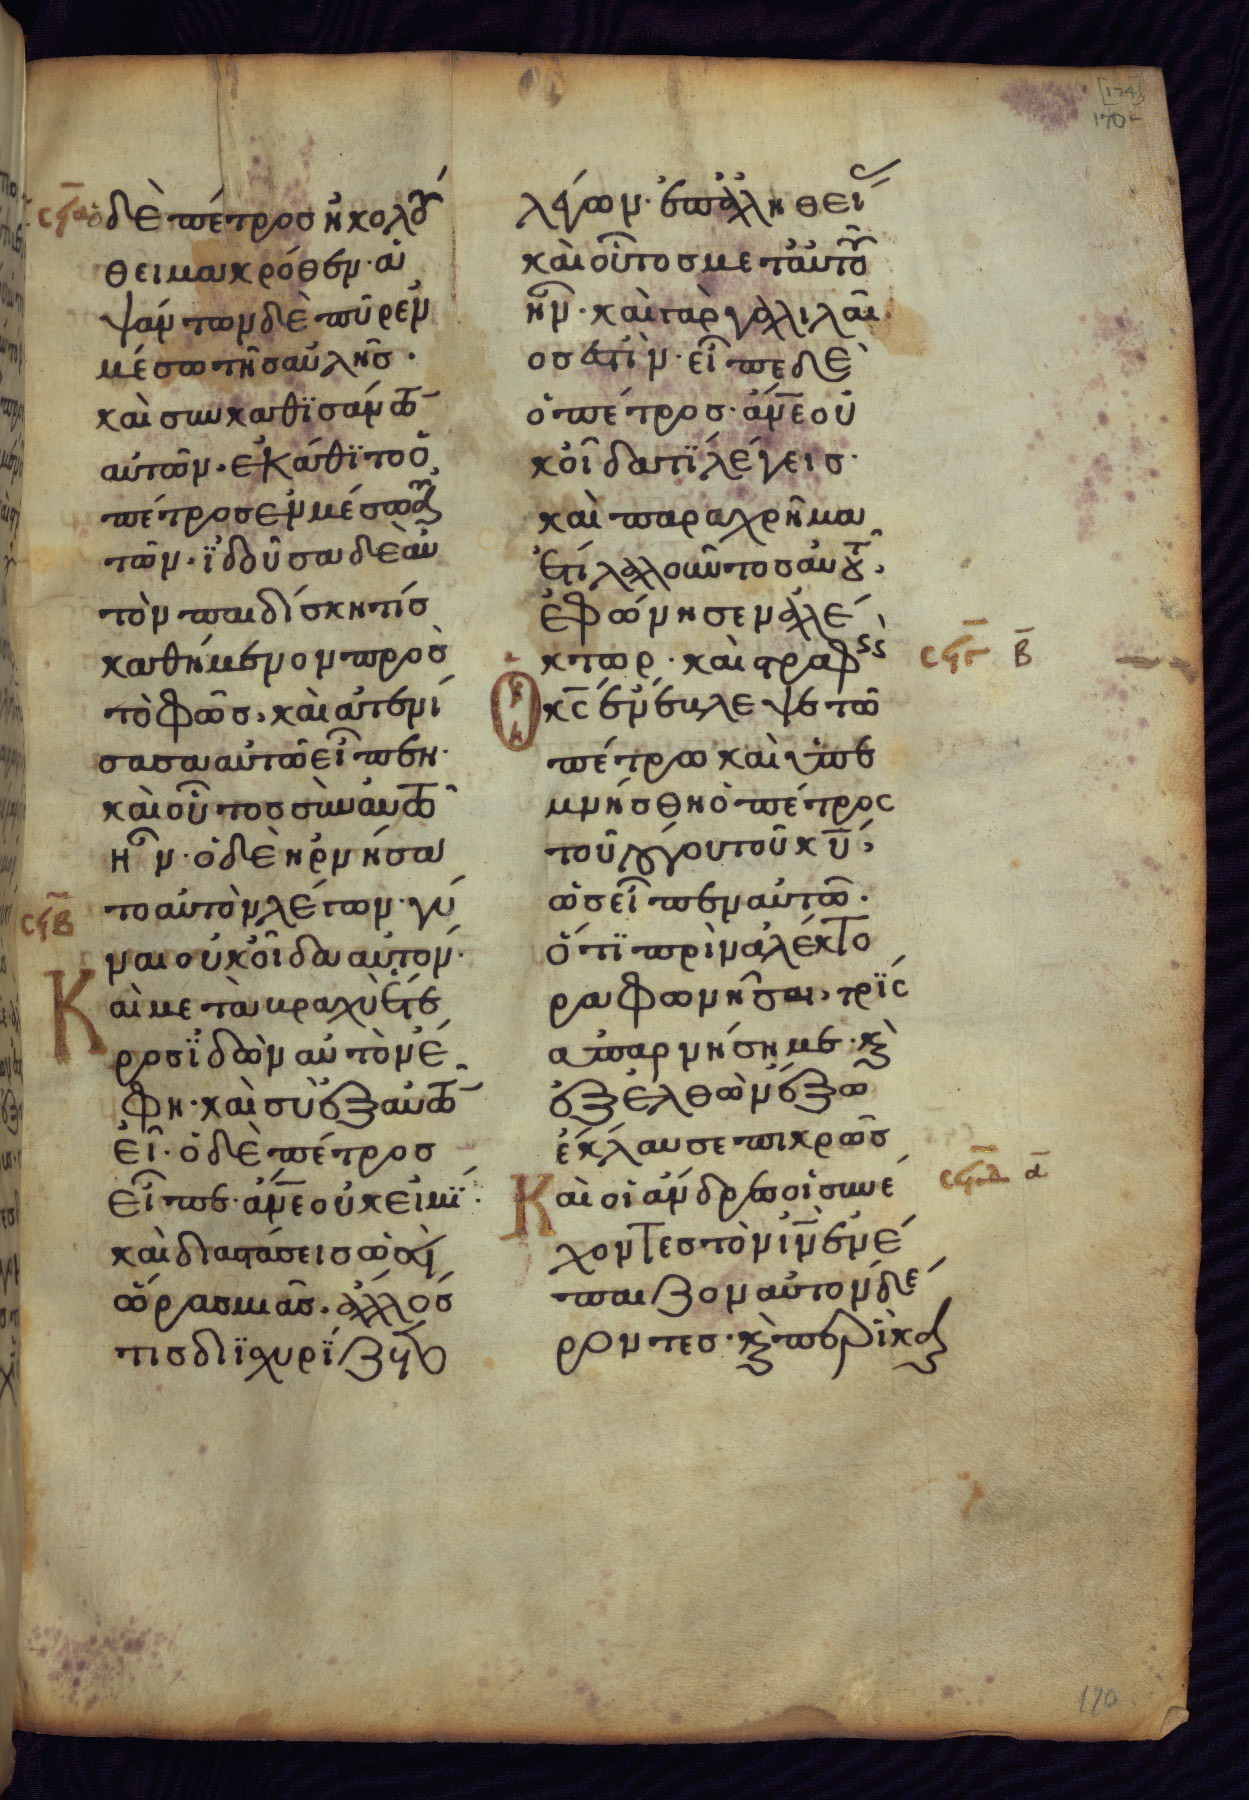 ὁ δὲ πέτρος ἠκολού
θει μακρόθεν· ἁ
ψάντων δὲ πῦρ ἐν
μέσω τῆς αὐλῆς·
καὶ συνκαθϊσάντω̅
αὐτῶν· ἐκάθϊτο ὁ
πέτρος ἐν μέσω αὐ
τῶν· ϊδοῦσα δὲ αὐ
τὸν παιδίσκη τίς
καθήμενον πρὸς
τὸ φῶς, καὶ ἀτενί
σασα αὐτῶ εἶπεν·
καὶ οὗτος σὺν αὐτῶ
ἦν· ὁ δὲ ἠρνήσα
το αὐτὸν λέγων· γύ
ναι οὐκ οἶδα αὐτόν·
Καὶ μετὰ βραχὺ ἕτε
ρος ϊδὼν αὐτὸν ἔ
φη· καὶ σὺ ἐξ αὐτῶ̅
εἶ· ὁ δὲ πέτρος
εἶπε· ἄνε οὐκ εἰμϊ·
καὶ διαστάσεις ὡσεὶ
ὥρας μιᾶς· ἄλλός
τις διϊσχυρίζετο
λέγων· ἐπ ἀληθείας
καὶ οὗτος μετ αὐτοῦ
ἦν· καὶ γὰρ γαλιλαῖ
ος ἐστὶν· εἶπε δὲ
ὁ πέτρος· ἄν̅ε οὐ
κ οἶδα τϊ λέγεις·
καὶ παραχρῆμα
ἔτι λαλοῦντος αὐτοῦ,
ἐφώνησεν ἀλέ
κτωρ· καὶ στραφεὶς
Ὁ κ̅ς ἐνέβλεψε τῶ
πέτρω καὶ ὑπε
μνήσθη ὁ πέτρος
τοῦ λόγου τοῦ κ̅υ,
ὡς εἶπεν αὐτῶ·
ὅτϊ πρὶν ἀλέκτο
ρα φωνῆσαι, τρϊς
ἀπαρνήση με· κὶ
ἐξελθὼν ἔξω
ἔκλαυσε πικρῶς
Καὶ οἱ ἄνδρες οἱ συνέ
χοντες τὸν ι̅ν ἐνέ
παιζον αὐτὸν δέ
ροντες· κὶ περϊκα
σϟα
σϟβ
σϟγ β
σϟδ α
[174]
170r
170